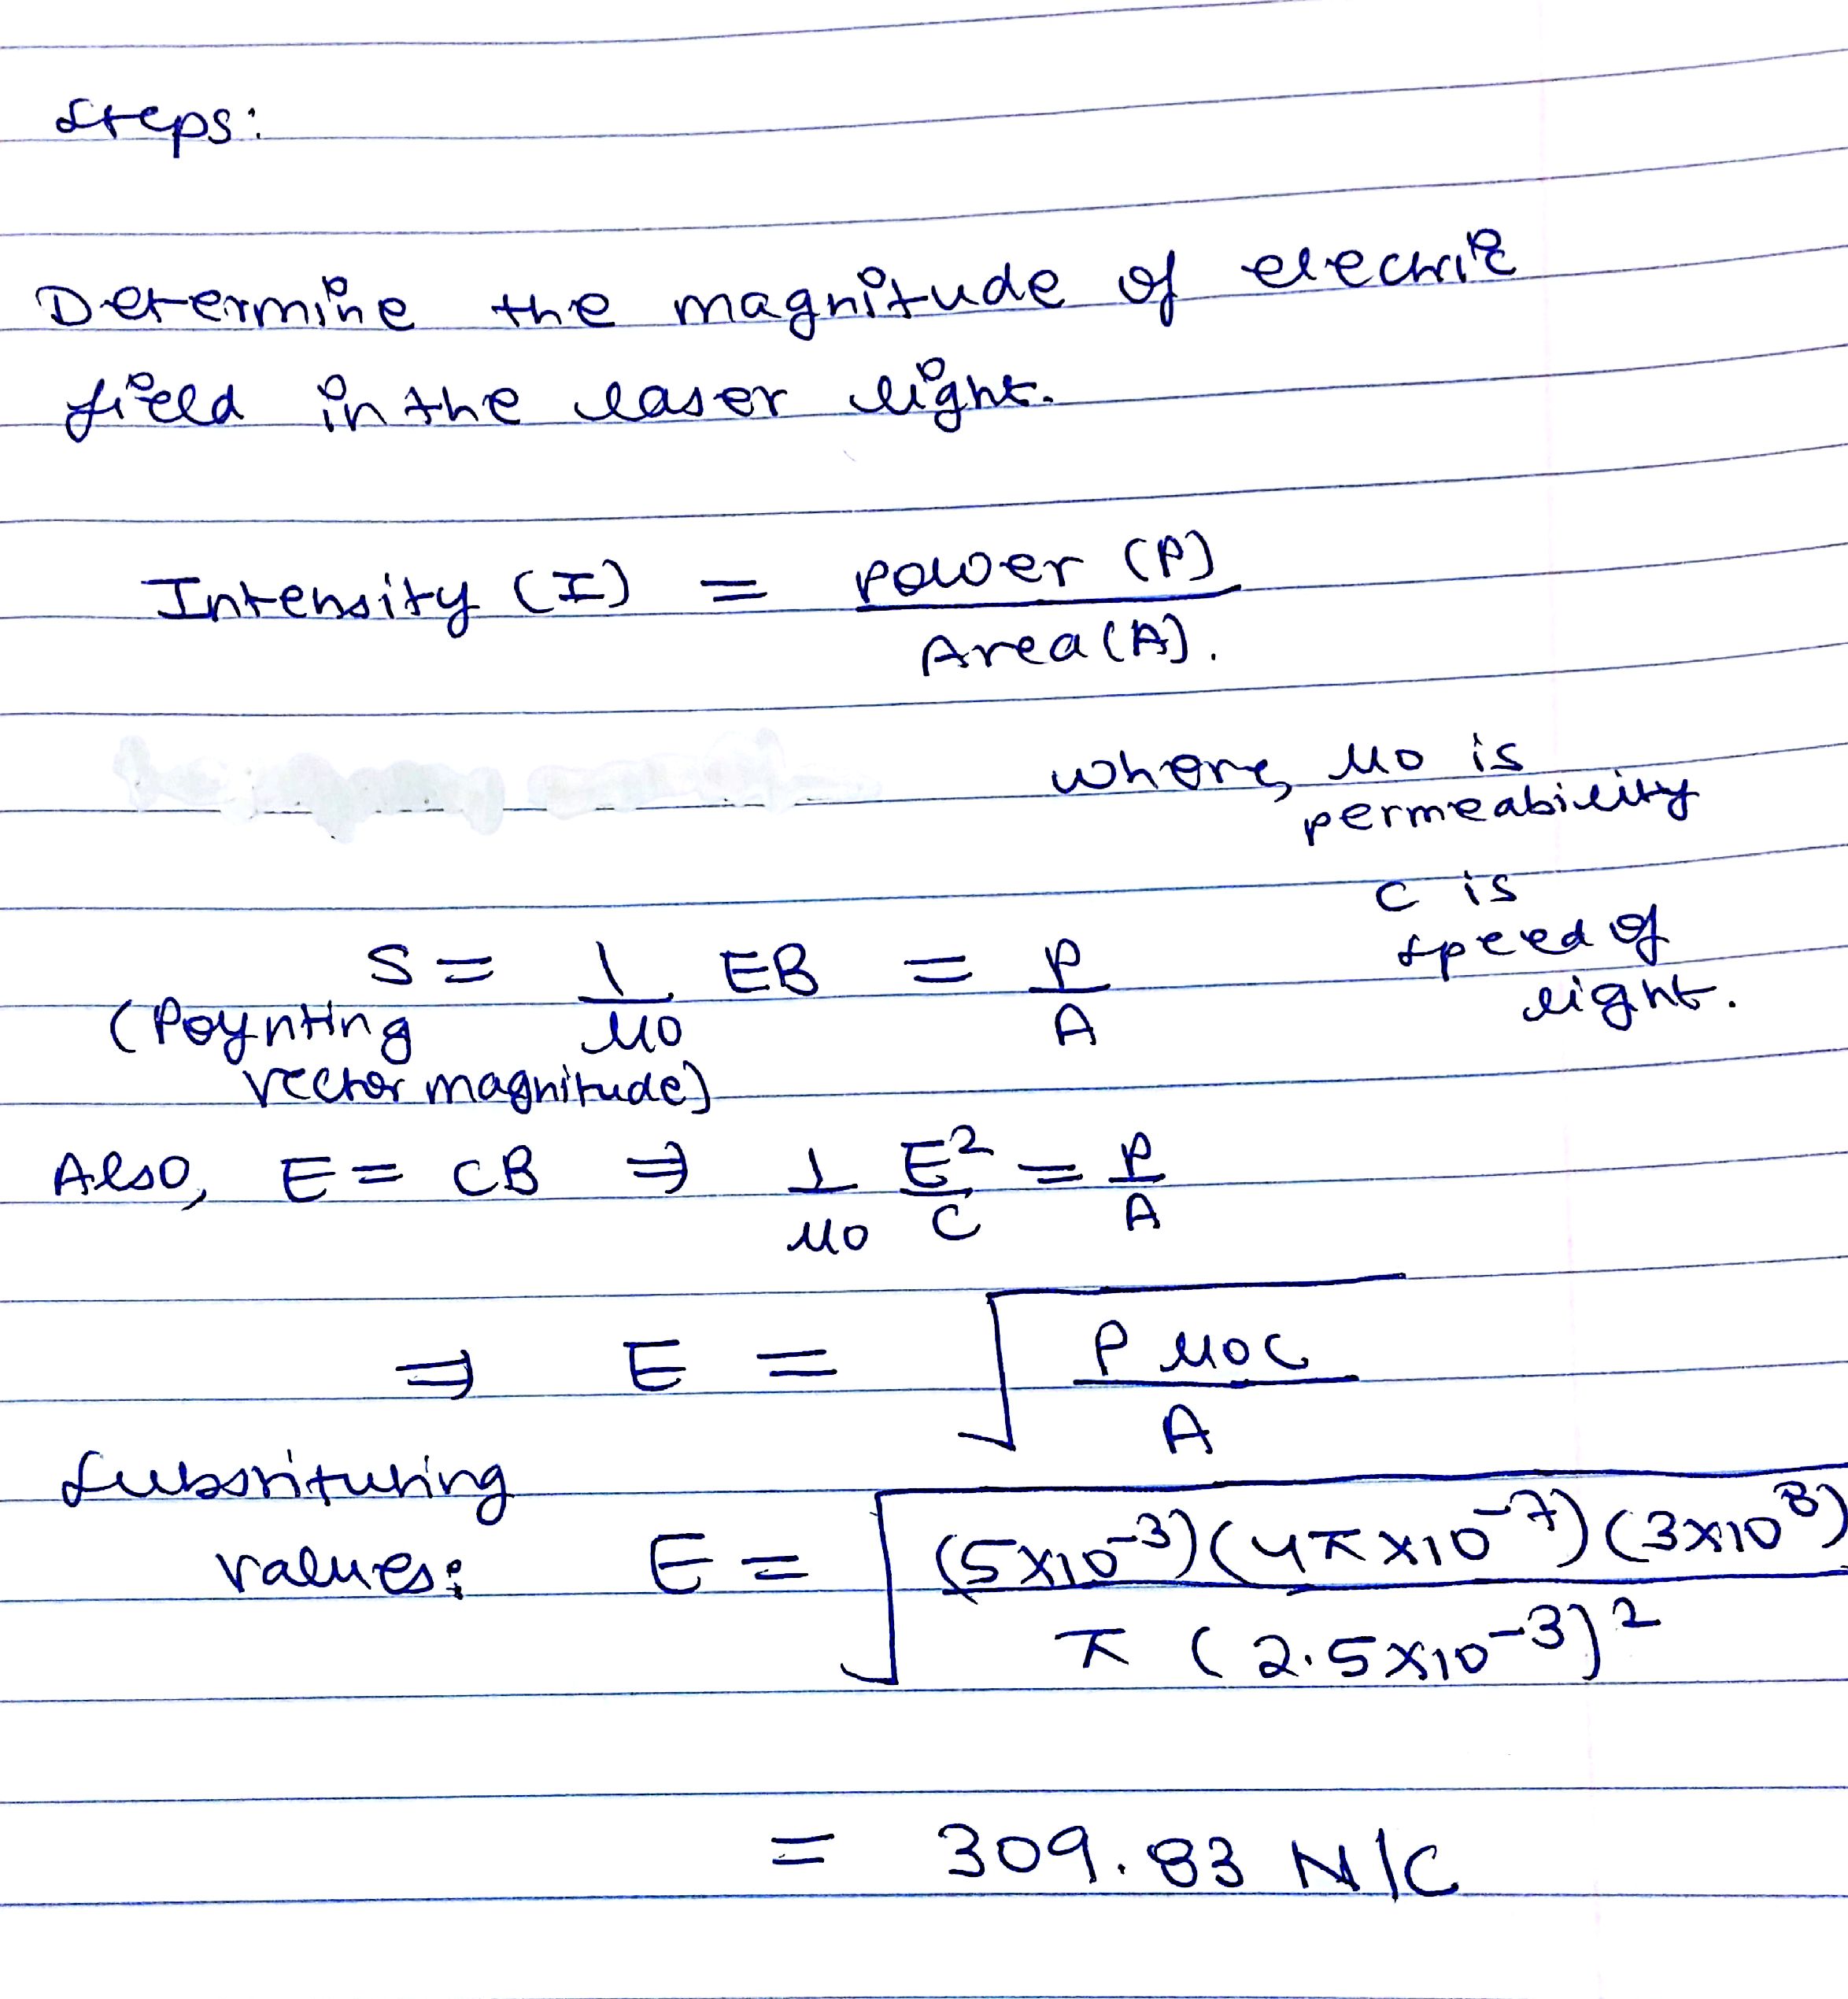 Steps:
Determine the magnitude of electric
field in the laser light.
Intensity (I) = Power (P)
Area (A).
where, μ0 is
permeability
c is
speed of
light.
S = 1 EB = P
(Poynting μ0 A
vector magnitude)
Also, E = CB ⇒ 1 E² = P
μ0 C A
⇒ E = √ P μ0 C
A
Substituting
values: E = √ (5×10⁻³)(4π×10⁻⁷)(3×10⁸)
π (2.5×10⁻³)²
= 309.83 N/C